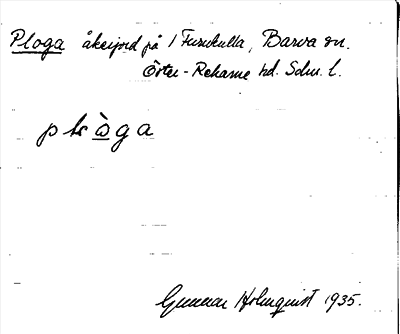 Ploga åkerjord på 1 Furukulla, Barva sn.
Öster-Rekarne hd. Södm. l.
Gunnar Holmquist 1935.